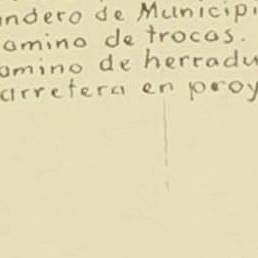 ndero de Municipi
amino de trocas.
amino de herradu
arretera en proy